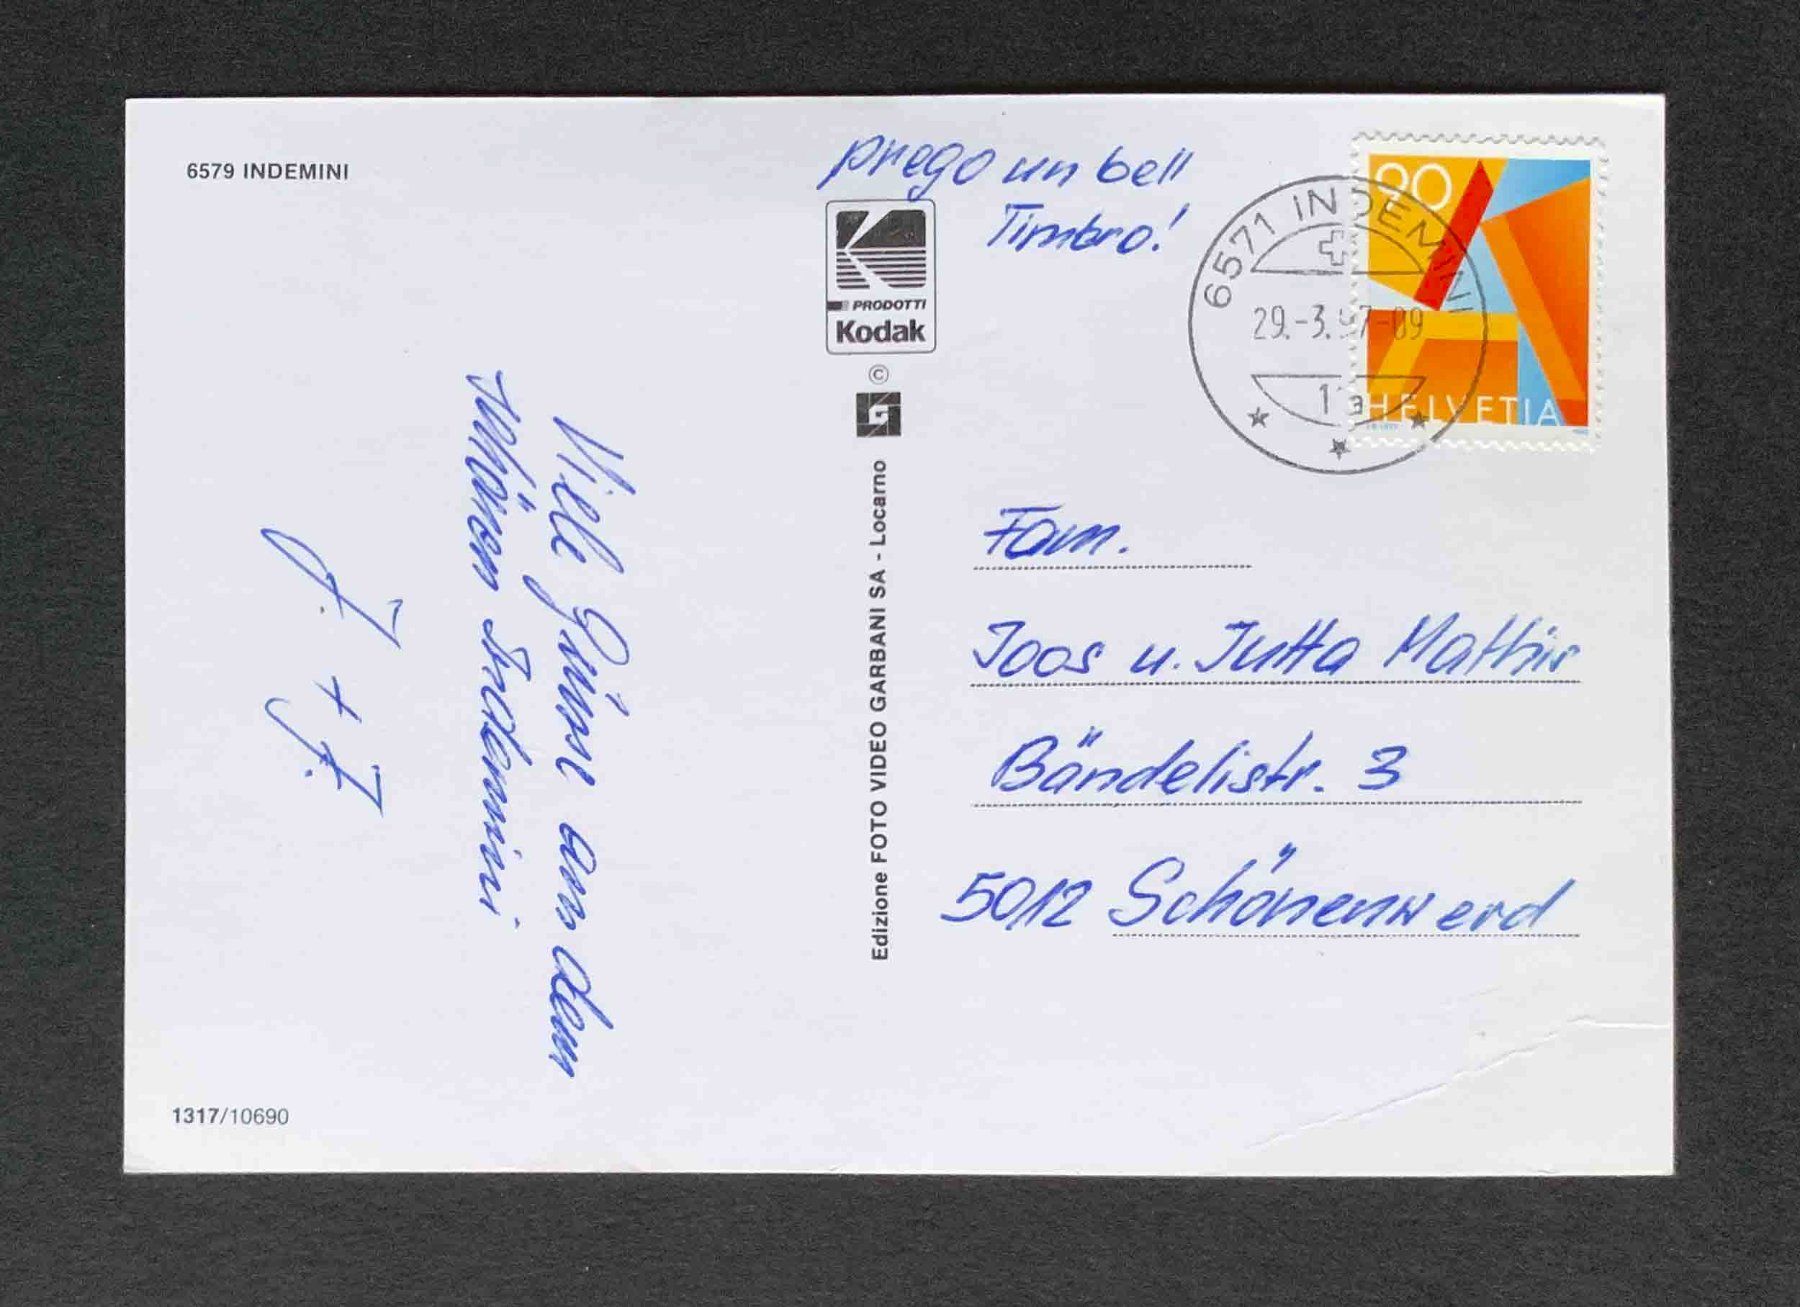 6579 INDEMINI
prego un bell
Timbro!
PRODOTTI
Kodak
©
Edizione FOTO VIDEO GARBANI SA - Locarno
90
HELVETIA
6571 INDEMINI
29.-3.97-09
1 a
Fam.
Joos u. Jutta Mathis
Bändelistr. 3
5012 Schönenwerd
Viele Grüsse aus dem
schönen Indemini
J. + F.
1317/10690